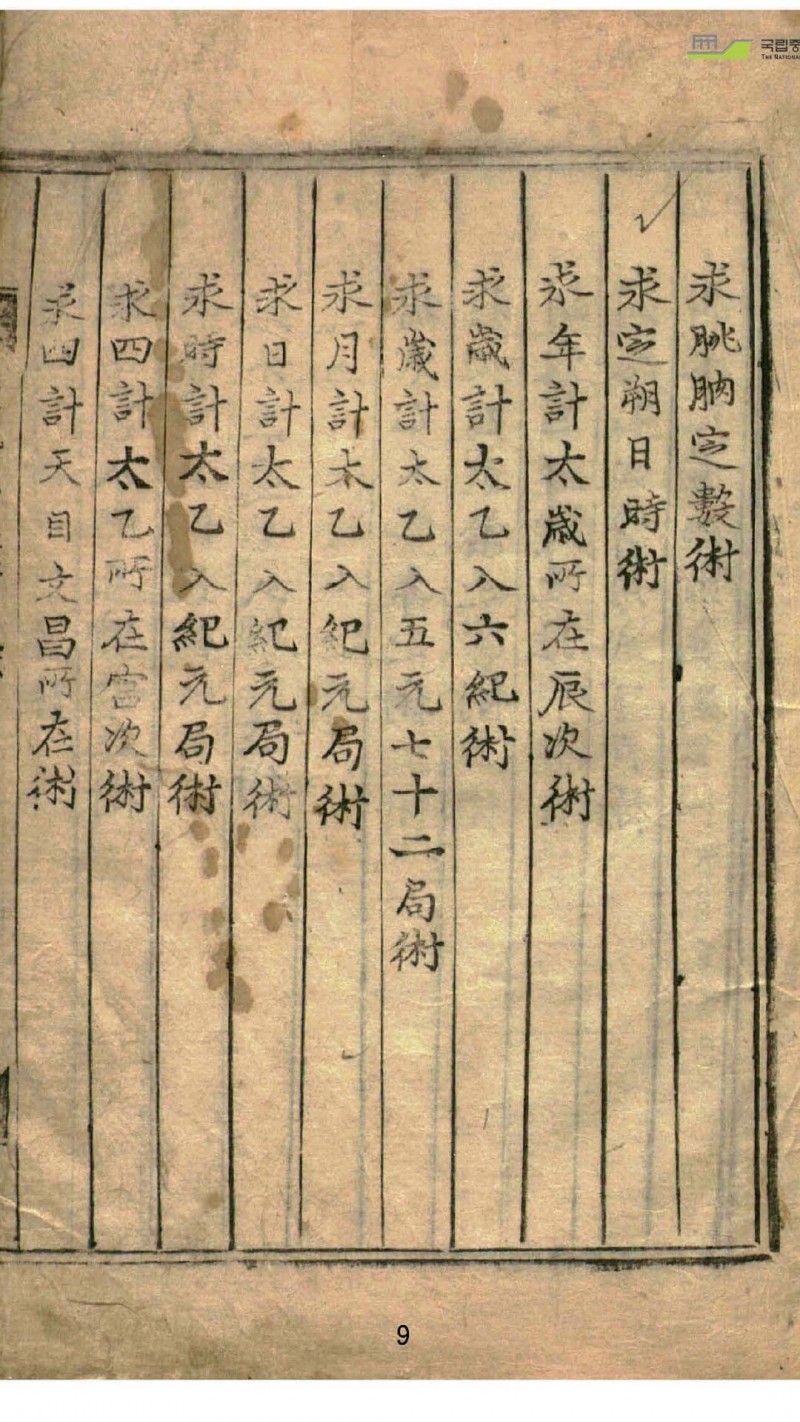 국립중
THE NATIONA
求朓朒㝎數術
求㝎朔日時術
求年計太歲所在辰次術
求歲計太乙入六紀術
求歲計太乙入五元七十二局術
求月計太乙入紀元局術
求日計太乙入紀元局術
求時計太乙入紀元局術
求四計太乙所在宮次術
求四計天目文昌所在術
9